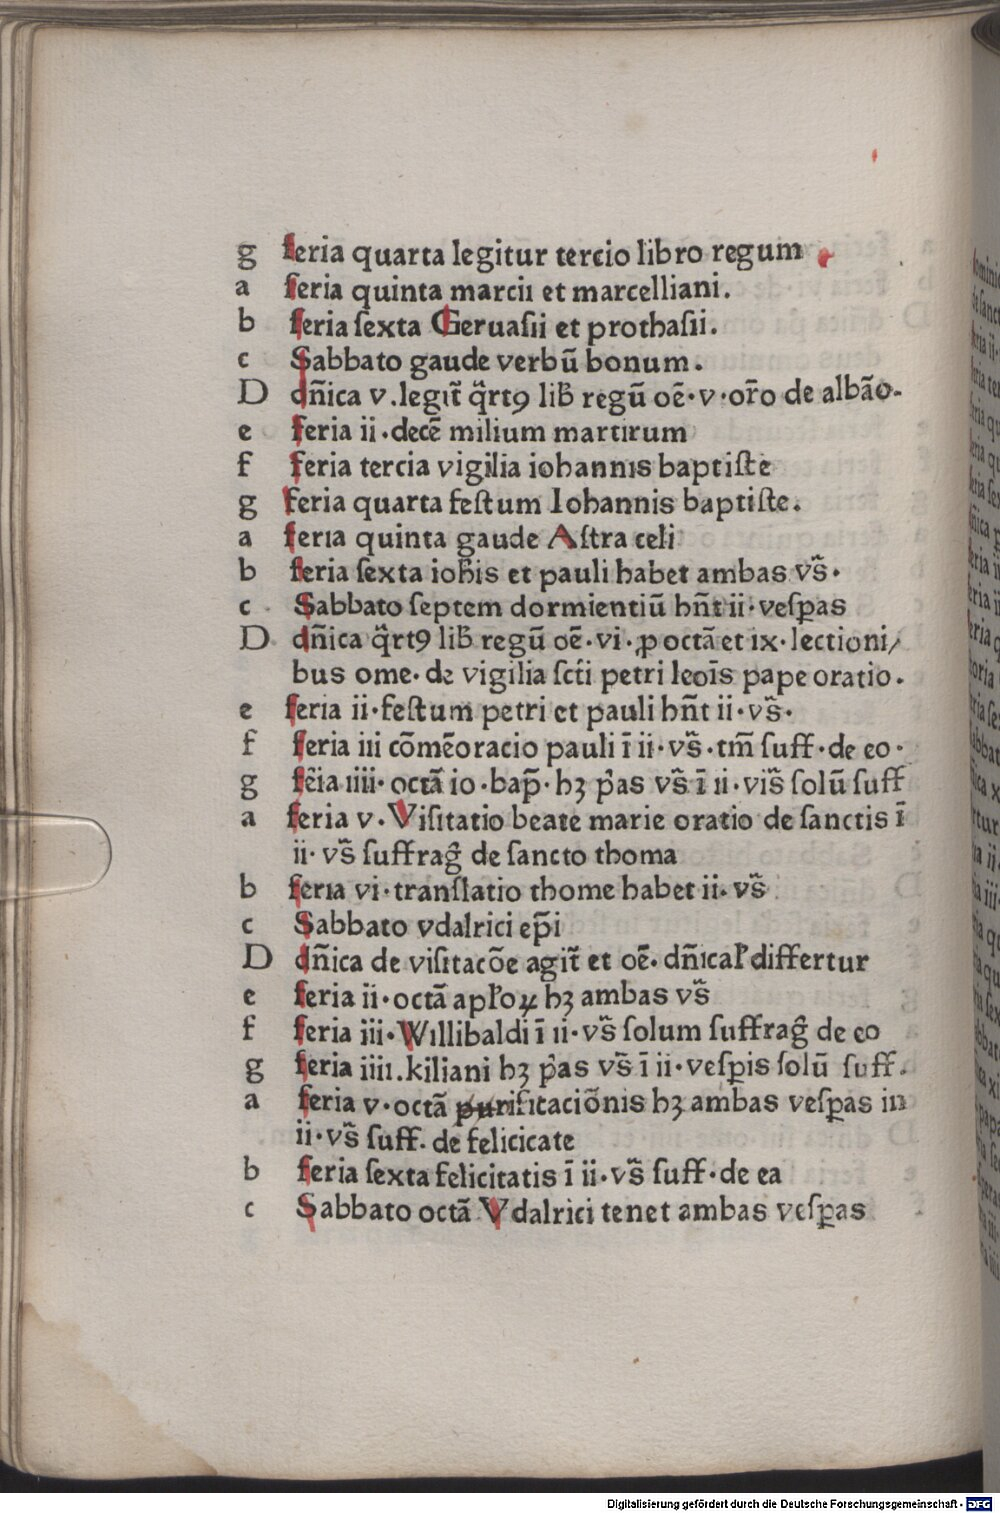 g feria quarta legitur tercio libro regum
a feria quinta marcii et marcelliani.
b feria ſexta Geruaſii et prothaſii.
c Sabbato gaude verbū bonum.
D dñica v.legit̃ q̃rtꝯ lib̃ regū oē·v·or̃o de albāo.
e feria ii·decē milium martirum
f feria tercia vigilia iohannis baptiſte
g feria quarta feſtum Iohannis baptiſte.
a feria quinta gaude Aſtra celi
b feria ſexta ioh̃is et pauli habet ambas vs̃·
c Sabbato ſeptem dormientiū hñt ii·veſꝑas
D dñica q̃rtꝯ lib̃ regū oē·vi·ꝓ octā et ix·lectioni/
bus ome·de vigilia ſcti petri leoīs pape oratio.
e feria ii·feſtum petri et pauli hñt ii·vs̃·
f feria iii cōmēoracio pauli ī ii·vs̃·tm̃ ſuff·de eo·
g fēia iiii·octā io·bap̃·hꝫ p̃as vs̃ ī ii·vis̃ ſolū ſuff
a feria v·Viſitatio beate marie oratio de ſanctis ī
ii·vs̃ ſuffrag̃ de ſancto thoma
b feria vi·tranſlatio thome habet ii·vs̃
c Sabbato vdalrici ep̃i
D dñica de viſitacōe agit̃ et oē·dñical̃ differtur
e feria ii·octā apl̃oꝝ hꝫ ambas vs̃
f feria iii·Willibaldi ī ii·vs̃ ſolum ſuffrag̃ de eo
g feria iiii.kiliani hꝫ p̃as vs̃ ī ii·veſꝑis ſolū ſuff.
a feria v·octā purificaciōnis hꝫ ambas veſꝑas in
ii·vs̃ ſuff·de felicicate
b feria ſexta felicitatis ī ii·vs̃ ſuff·de ea
c Sabbato octā Vdalrici tenet ambas veſꝑas
Digitalisierung gefördert durch die Deutsche Forschungsgemeinschaft - DFG